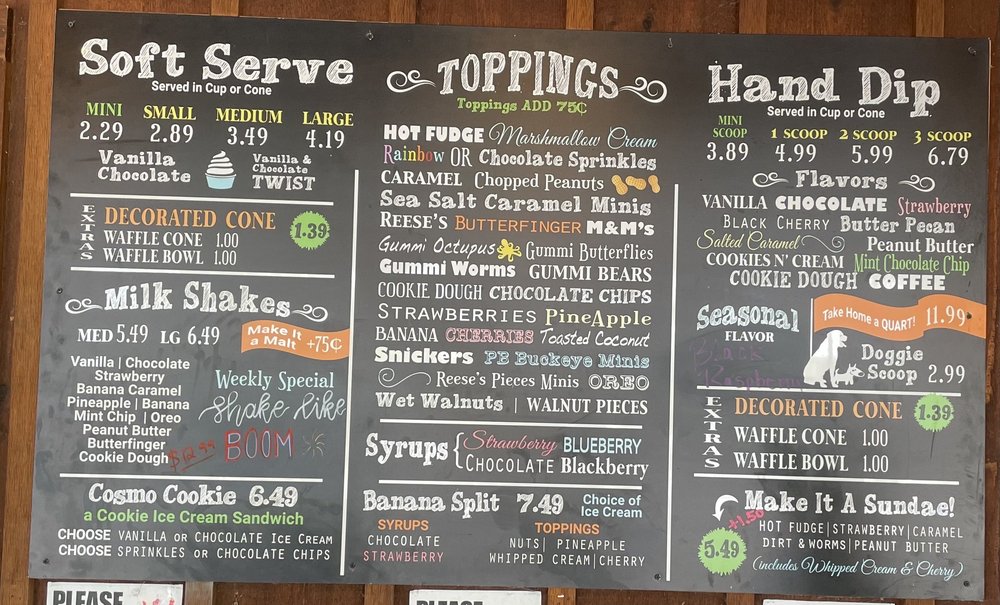 Soft Serve
Served in Cup or Cone
MINI SMALL MEDIUM LARGE
2.29 2.89 3.49 4.19
Vanilla
Chocolate
Vanilla &
Chocolate
TWIST
EXTRAS
DECORATED CONE 1.39
WAFFLE CONE 1.00
WAFFLE BOWL 1.00
Milk Shakes
MED 5.49 LG 6.49
Make It
a Malt +75¢
Vanilla | Chocolate
Strawberry
Banana Caramel
Pineapple | Banana
Mint Chip | Oreo
Peanut Butter
Butterfinger
Cookie Dough
Weekly Special
Shake like
BOOM
$12.99
Cosmo Cookie 6.49
a Cookie Ice Cream Sandwich
CHOOSE VANILLA OR CHOCOLATE ICE CREAM
CHOOSE SPRINKLES OR CHOCOLATE CHIPS
TOPPINGS
Toppings ADD 75¢
HOT FUDGE Marshmallow Cream
Rainbow OR Chocolate Sprinkles
CARAMEL Chopped Peanuts
Sea Salt Caramel Minis
REESE'S BUTTERFINGER M&M's
Gummi Octupus Gummi Butterflies
Gummi Worms GUMMI BEARS
COOKIE DOUGH CHOCOLATE CHIPS
STRAWBERRIES PineApple
BANANA CHERRIES Toasted Coconut
Snickers PB Buckeye Minis
Reese's Pieces Minis OREO
Wet Walnuts | WALNUT PIECES
Syrups { Strawberry BLUEBERRY
CHOCOLATE Blackberry
Banana Split 7.49 Choice of
Ice Cream
SYRUPS
CHOCOLATE
STRAWBERRY
TOPPINGS
NUTS | PINEAPPLE
WHIPPED CREAM | CHERRY
Hand Dip
Served in Cup or Cone
MINI
SCOOP 1 SCOOP 2 SCOOP 3 SCOOP
3.89 4.99 5.99 6.79
Flavors
VANILLA CHOCOLATE Strawberry
BLACK CHERRY Butter Pecan
Salted Caramel Peanut Butter
COOKIES N' CREAM Mint Chocolate Chip
COOKIE DOUGH COFFEE
Seasonal
FLAVOR
Black
Raspberry
Take Home a QUART! 11.99
Doggie
Scoop 2.99
EXTRAS
DECORATED CONE 1.39
WAFFLE CONE 1.00
WAFFLE BOWL 1.00
Make It A Sundae!
+1.50
5.49
HOT FUDGE | STRAWBERRY | CARAMEL
DIRT & WORMS | PEANUT BUTTER
(includes Whipped Cream & Cherry)
PLEASE
PLEASE